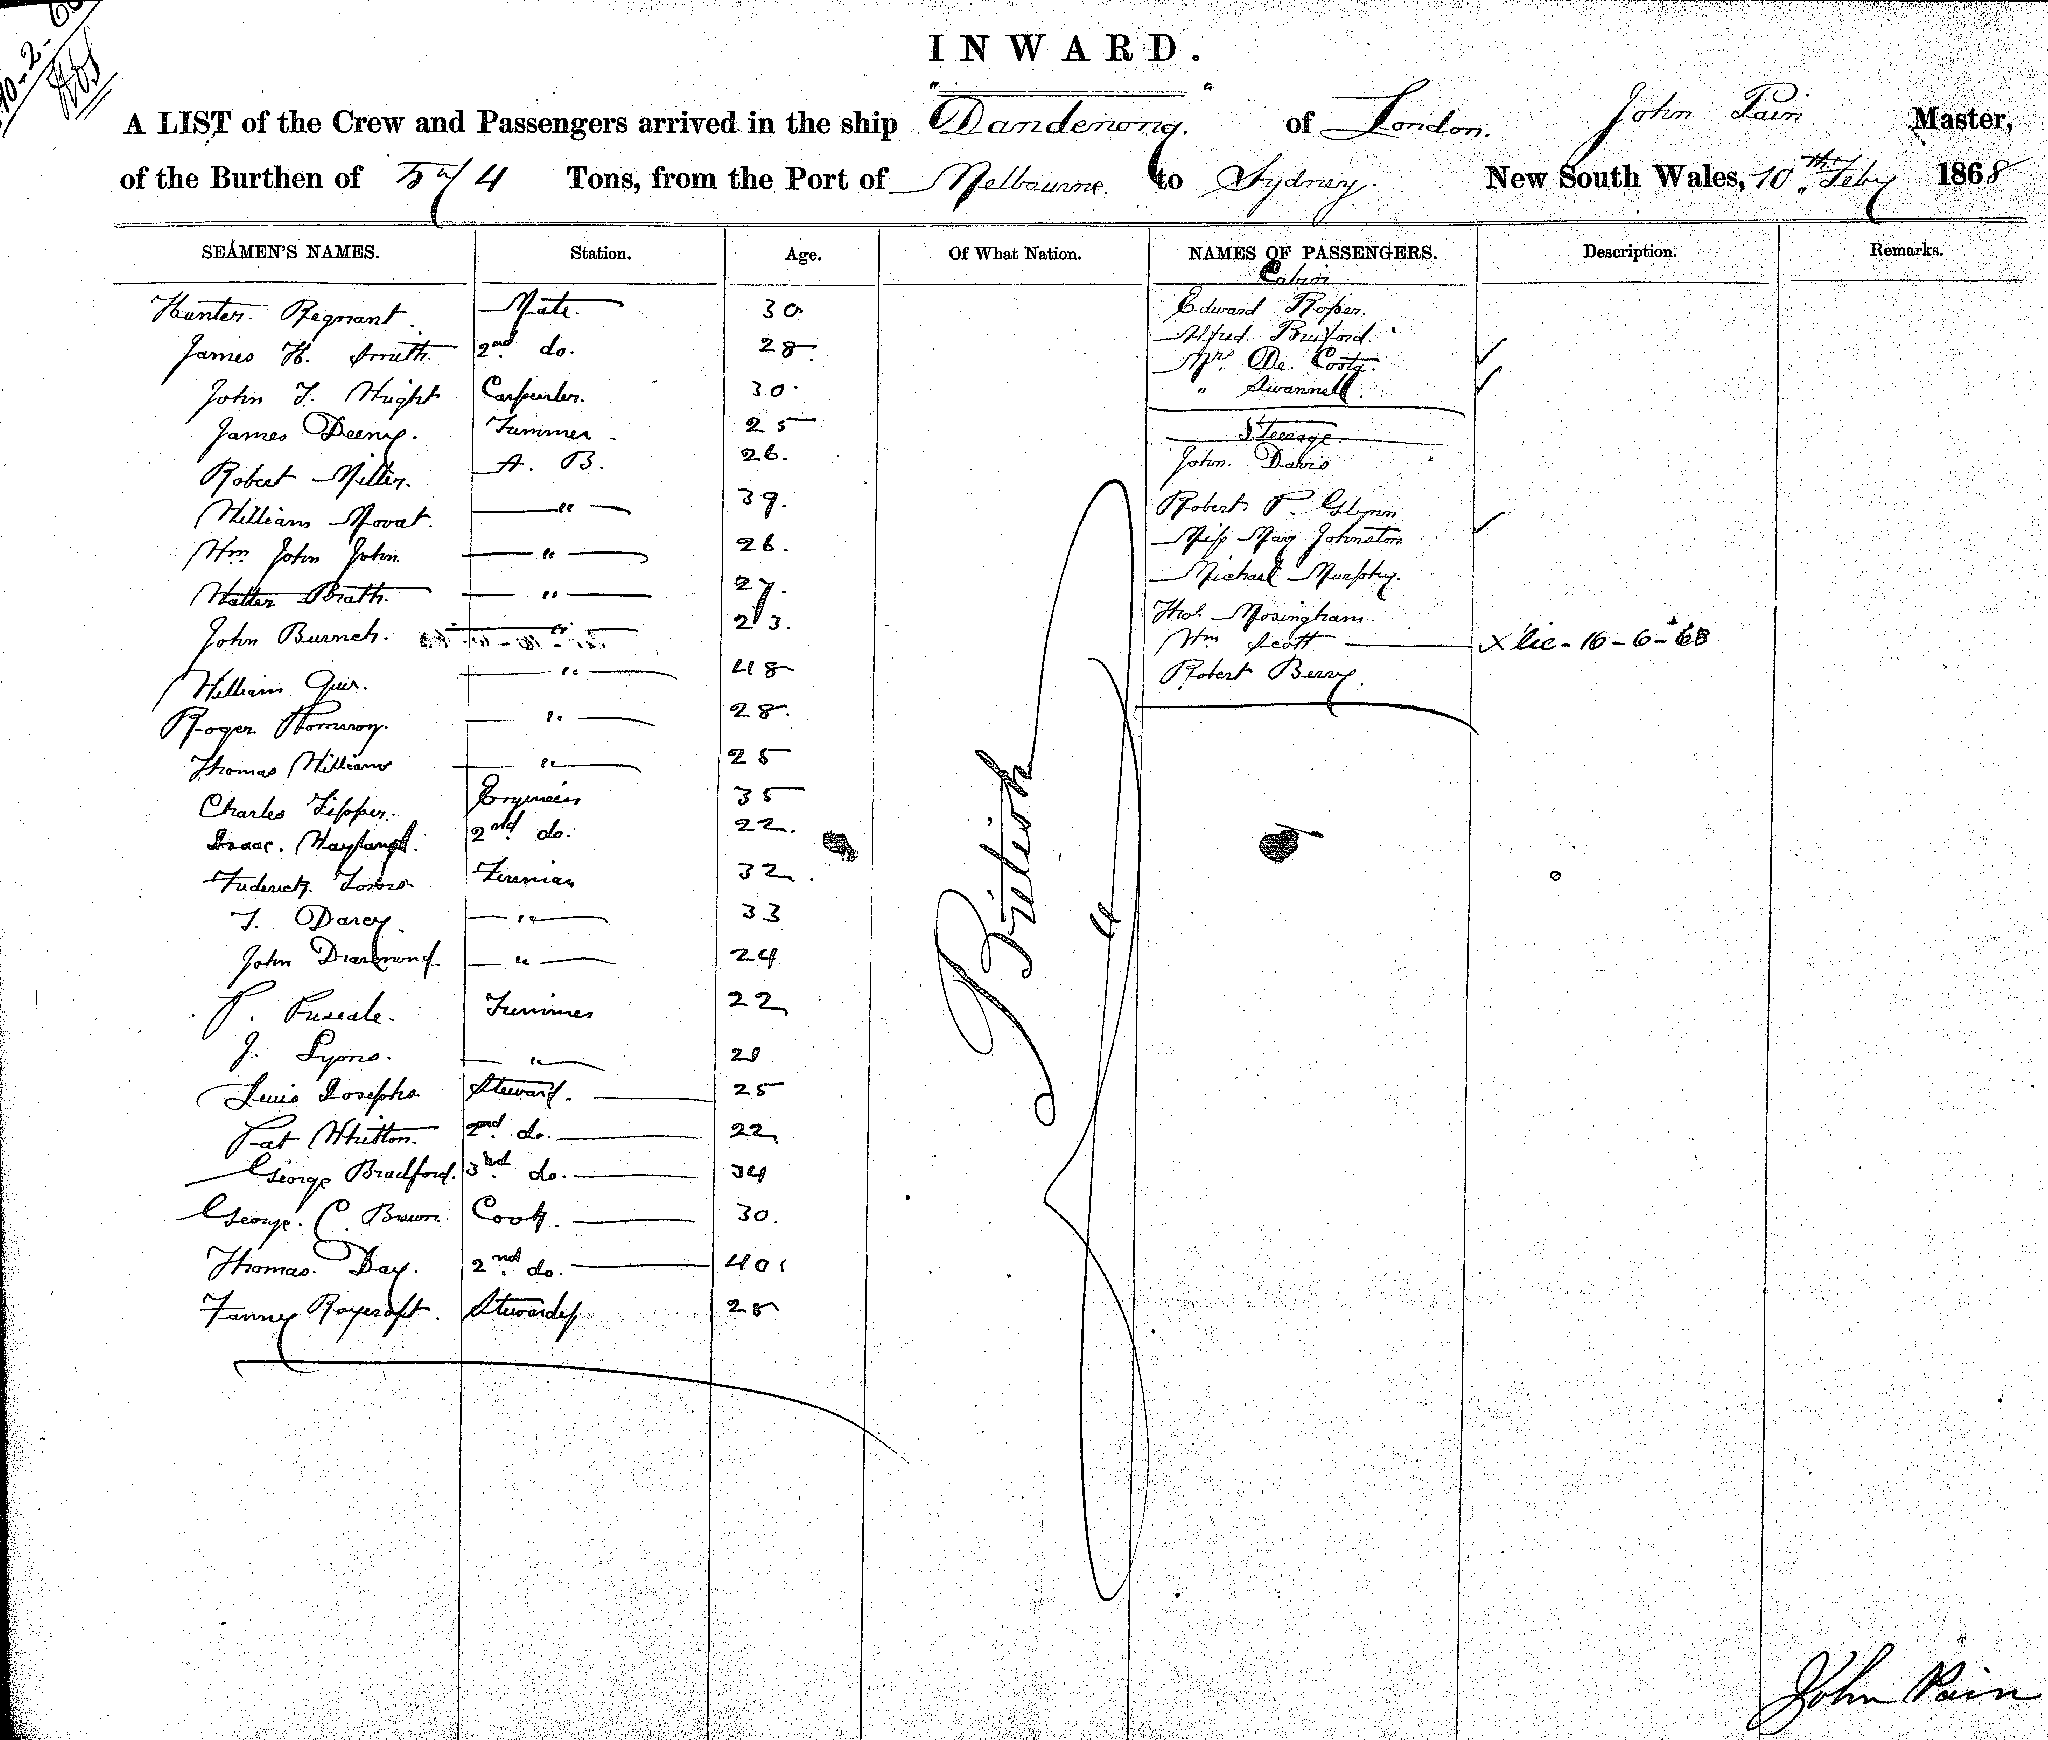 10-2-68
INWARD.
A LIST of the Crew and Passengers arrived in the ship "Dandenong." of London. John Pain Master,
of the Burthen of Tons, from the Port of Melbourne. to Sydney. New South Wales, 10th Feby 1868
SEAMEN'S NAMES. Station. Age. Of What Nation. NAMES OF PASSENGERS. Description. Remarks.
Cabin
Hunter Regnant. Mate. 30 Edward Roper.
Alfred
James H. Smith. 2nd do. 28. Mrs. De. Costa.
John T. Wright Carpenter. 30. " Swannell.
James Deeny. Trimmer. 25 Steerage.
Robert Miller. A. B. 26. John. Davis
William Movat. " 39. Robert Glynn
Wm John John. " 26. Miss Mary Johnston
Walter Brath. " 27. Michael Murphy.
John " 23. Thos.
Wm Scott X lic - 16-6-68
William " 48 Robert Berry.
Roger " 28.
Thomas Williams " 25
Charles Tipper. Engineer 35
Isaac. 2nd do. 22.
Frederick Fireman 32.
T. Darcy. " 33
John " 24
British
P. Trimmer 22
J. Lyons. " 28
Louis Josephs Steward. 25
Pat Whitton. 2nd do. 22
George Bradford. 3rd do. 34
George. C. Brown. Cook. 30.
Thomas. Day. 2nd do. 40.
Fanny Roycroft. Stewardess 28
John Pain